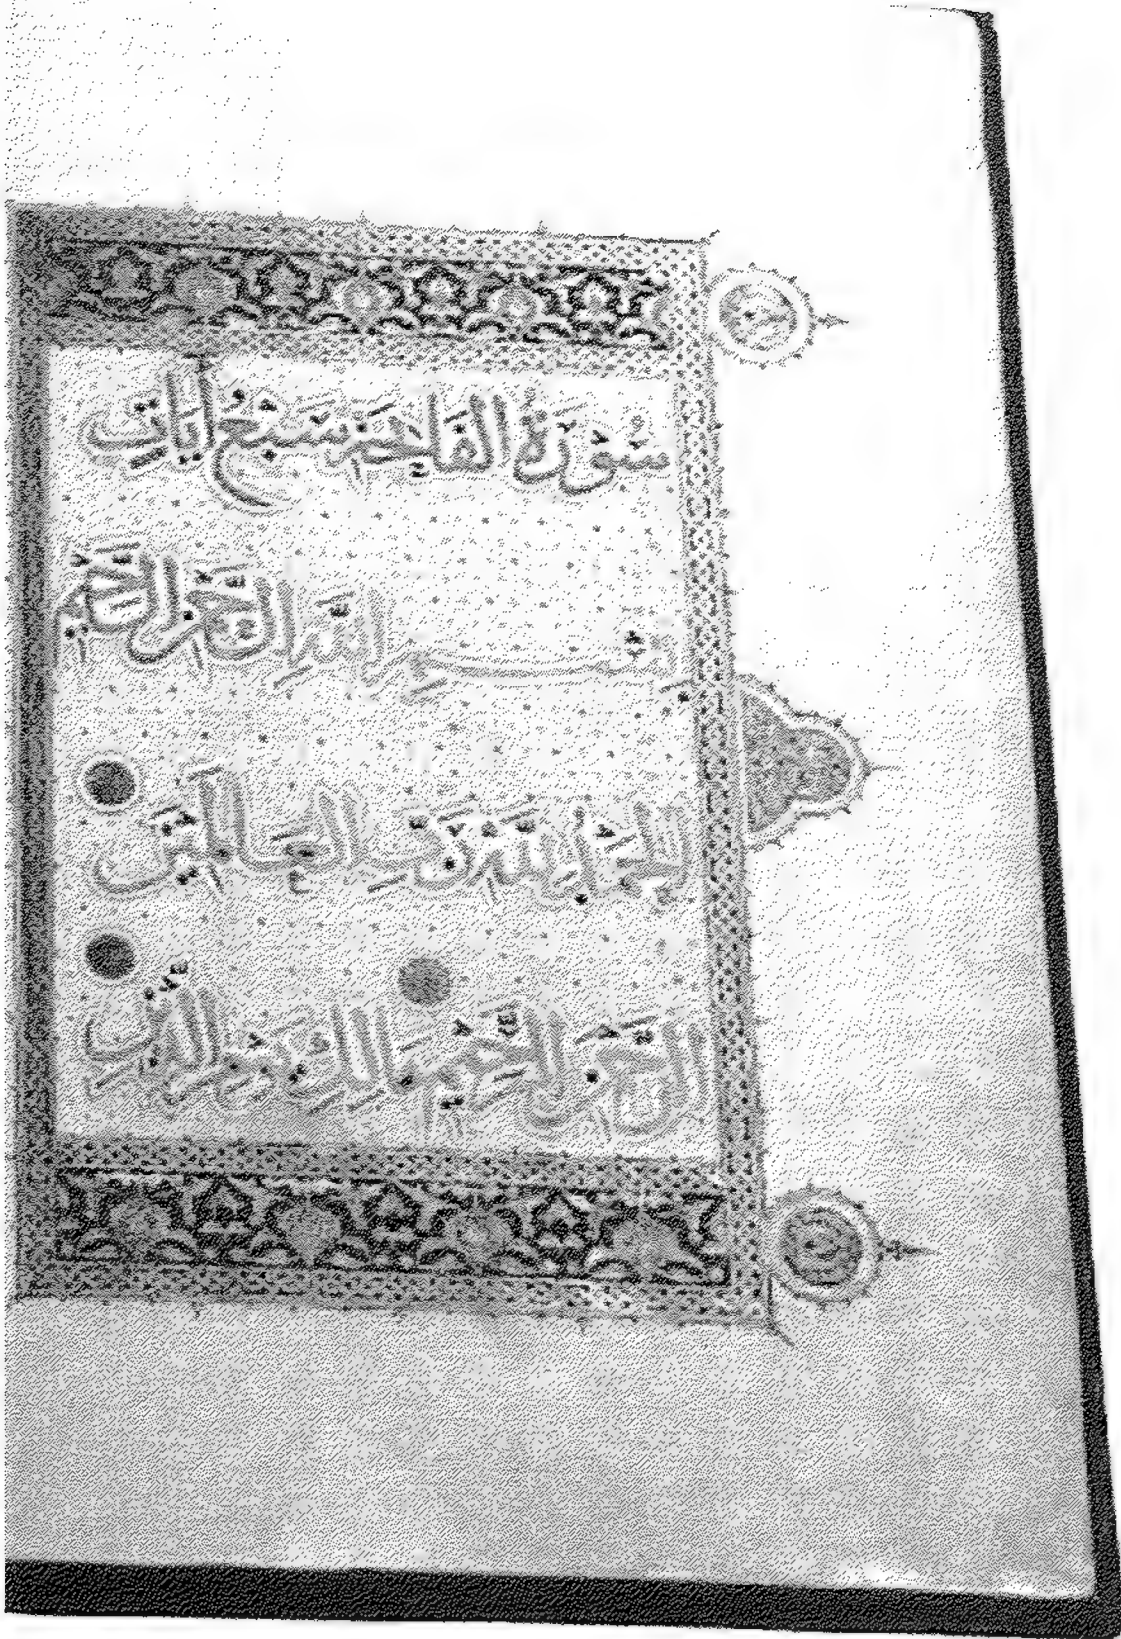 سُورَةُ الفَاتِحَةِ سَبْعُ اٰيَاتٍ
بِسْمِ اللّٰهِ الرَّحْمٰنِ الرَّحِيمِ
اَلْحَمْدُ لِلّٰهِ رَبِّ الْعَالَمِينَ
اَلرَّحْمٰنِ الرَّحِيمِ مَالِكِ يَوْمِ الدِّينِ